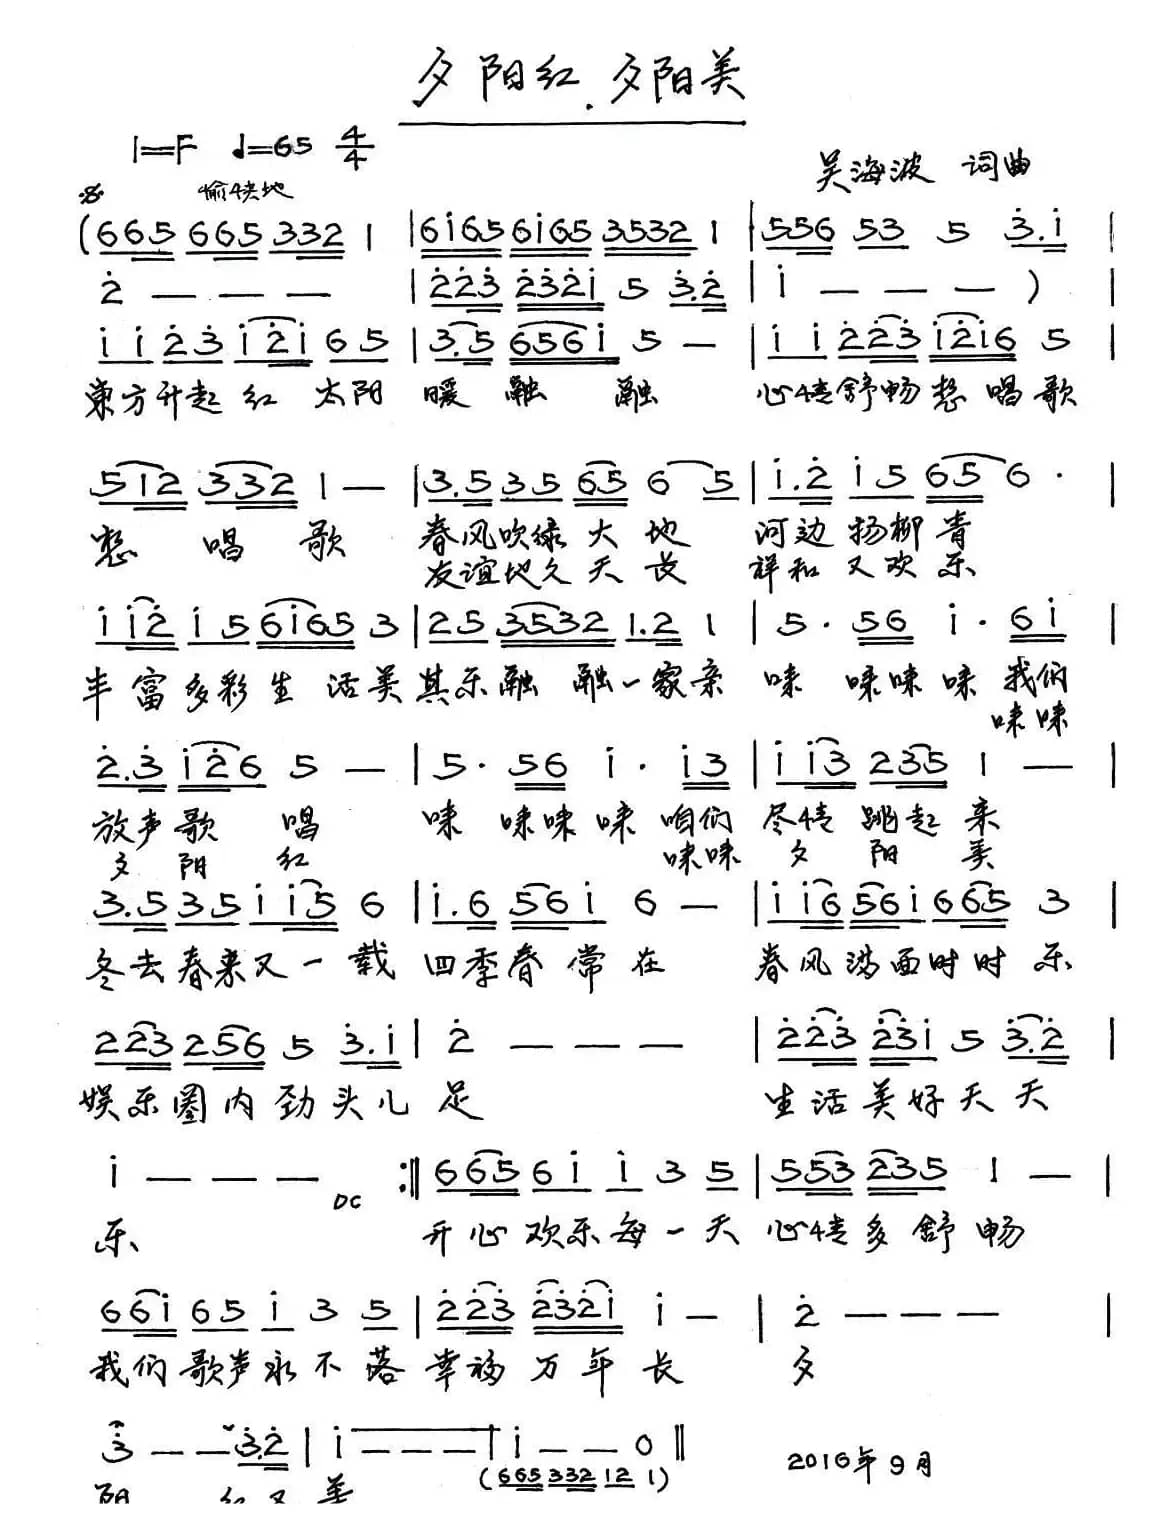 夕阳红.夕阳美
1=F ♩=65 4/4
吴海波 词曲
愉快地
(665 665 332 1 | 6i65 6i65 3532 1 | 556 53 5 3.i |
2 — — — | 223 232i 5 3.2 | i — — — ) |
i i 23 i2i 65 | 3.5 656i 5 — | i i 223 i2i6 5 |
東方升起红太阳 暖融融 心情舒畅想唱歌
512 332 1 — | 3.5 35 65 6 5 | i.2 i5 65 6 · |
想唱歌 春风吹绿大地 河边扬柳青
友谊地久天长 祥和又欢乐
i i2 i5 6i65 3 | 25 3532 1.2 1 | 5 · 56 i · 6i |
丰富多彩生活美其乐融融一家亲 唻 唻唻唻 我们
唻唻
2.3 i26 5 — | 5 · 56 i · i3 | i i3 235 1 — |
放声歌唱 唻 唻唻唻 咱们 尽情跳起来
夕阳红 唻唻 夕阳美
3.5 35 i i5 6 | i.6 56i 6 — | i i6 56i 665 3 |
冬去春来又一载 四季春常在 春风满面时时乐
223 256 5 3.i | 2 — — — | 223 23i 5 3.2 |
娱乐圈内劲头儿足 生活美好天天
i — — — DC :‖ 665 6i i 3 5 | 553 235 1 — |
乐 开心欢乐每一天 心情多舒畅
66i 65 i 3 5 | 223 232i i — | 2 — — — |
我们歌声永不落 幸福万年长 夕
3 — — 3.2 | i — — — | i — — 0 ‖
(665 332 12 1)
2016年9月
阳 红又美